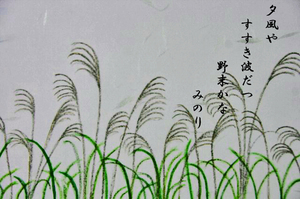 夕風や
すすき波だつ
野末かな
みのり